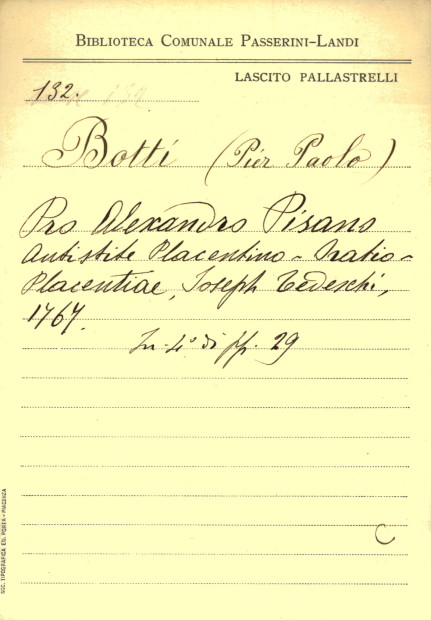 BIBLIOTECA COMUNALE PASSERINI-LANDI
LASCITO PALLASTRELLI
132.
Botti (Pier Paolo)
Pro Alexandro Pisano
Antistite Placentino - Oratio -
Placentiae, Joseph Tedeschi,
1767.
In-4° di pp. 29
C
SOC. TIPOGRAFICA ED. PORTA - PIACENZA